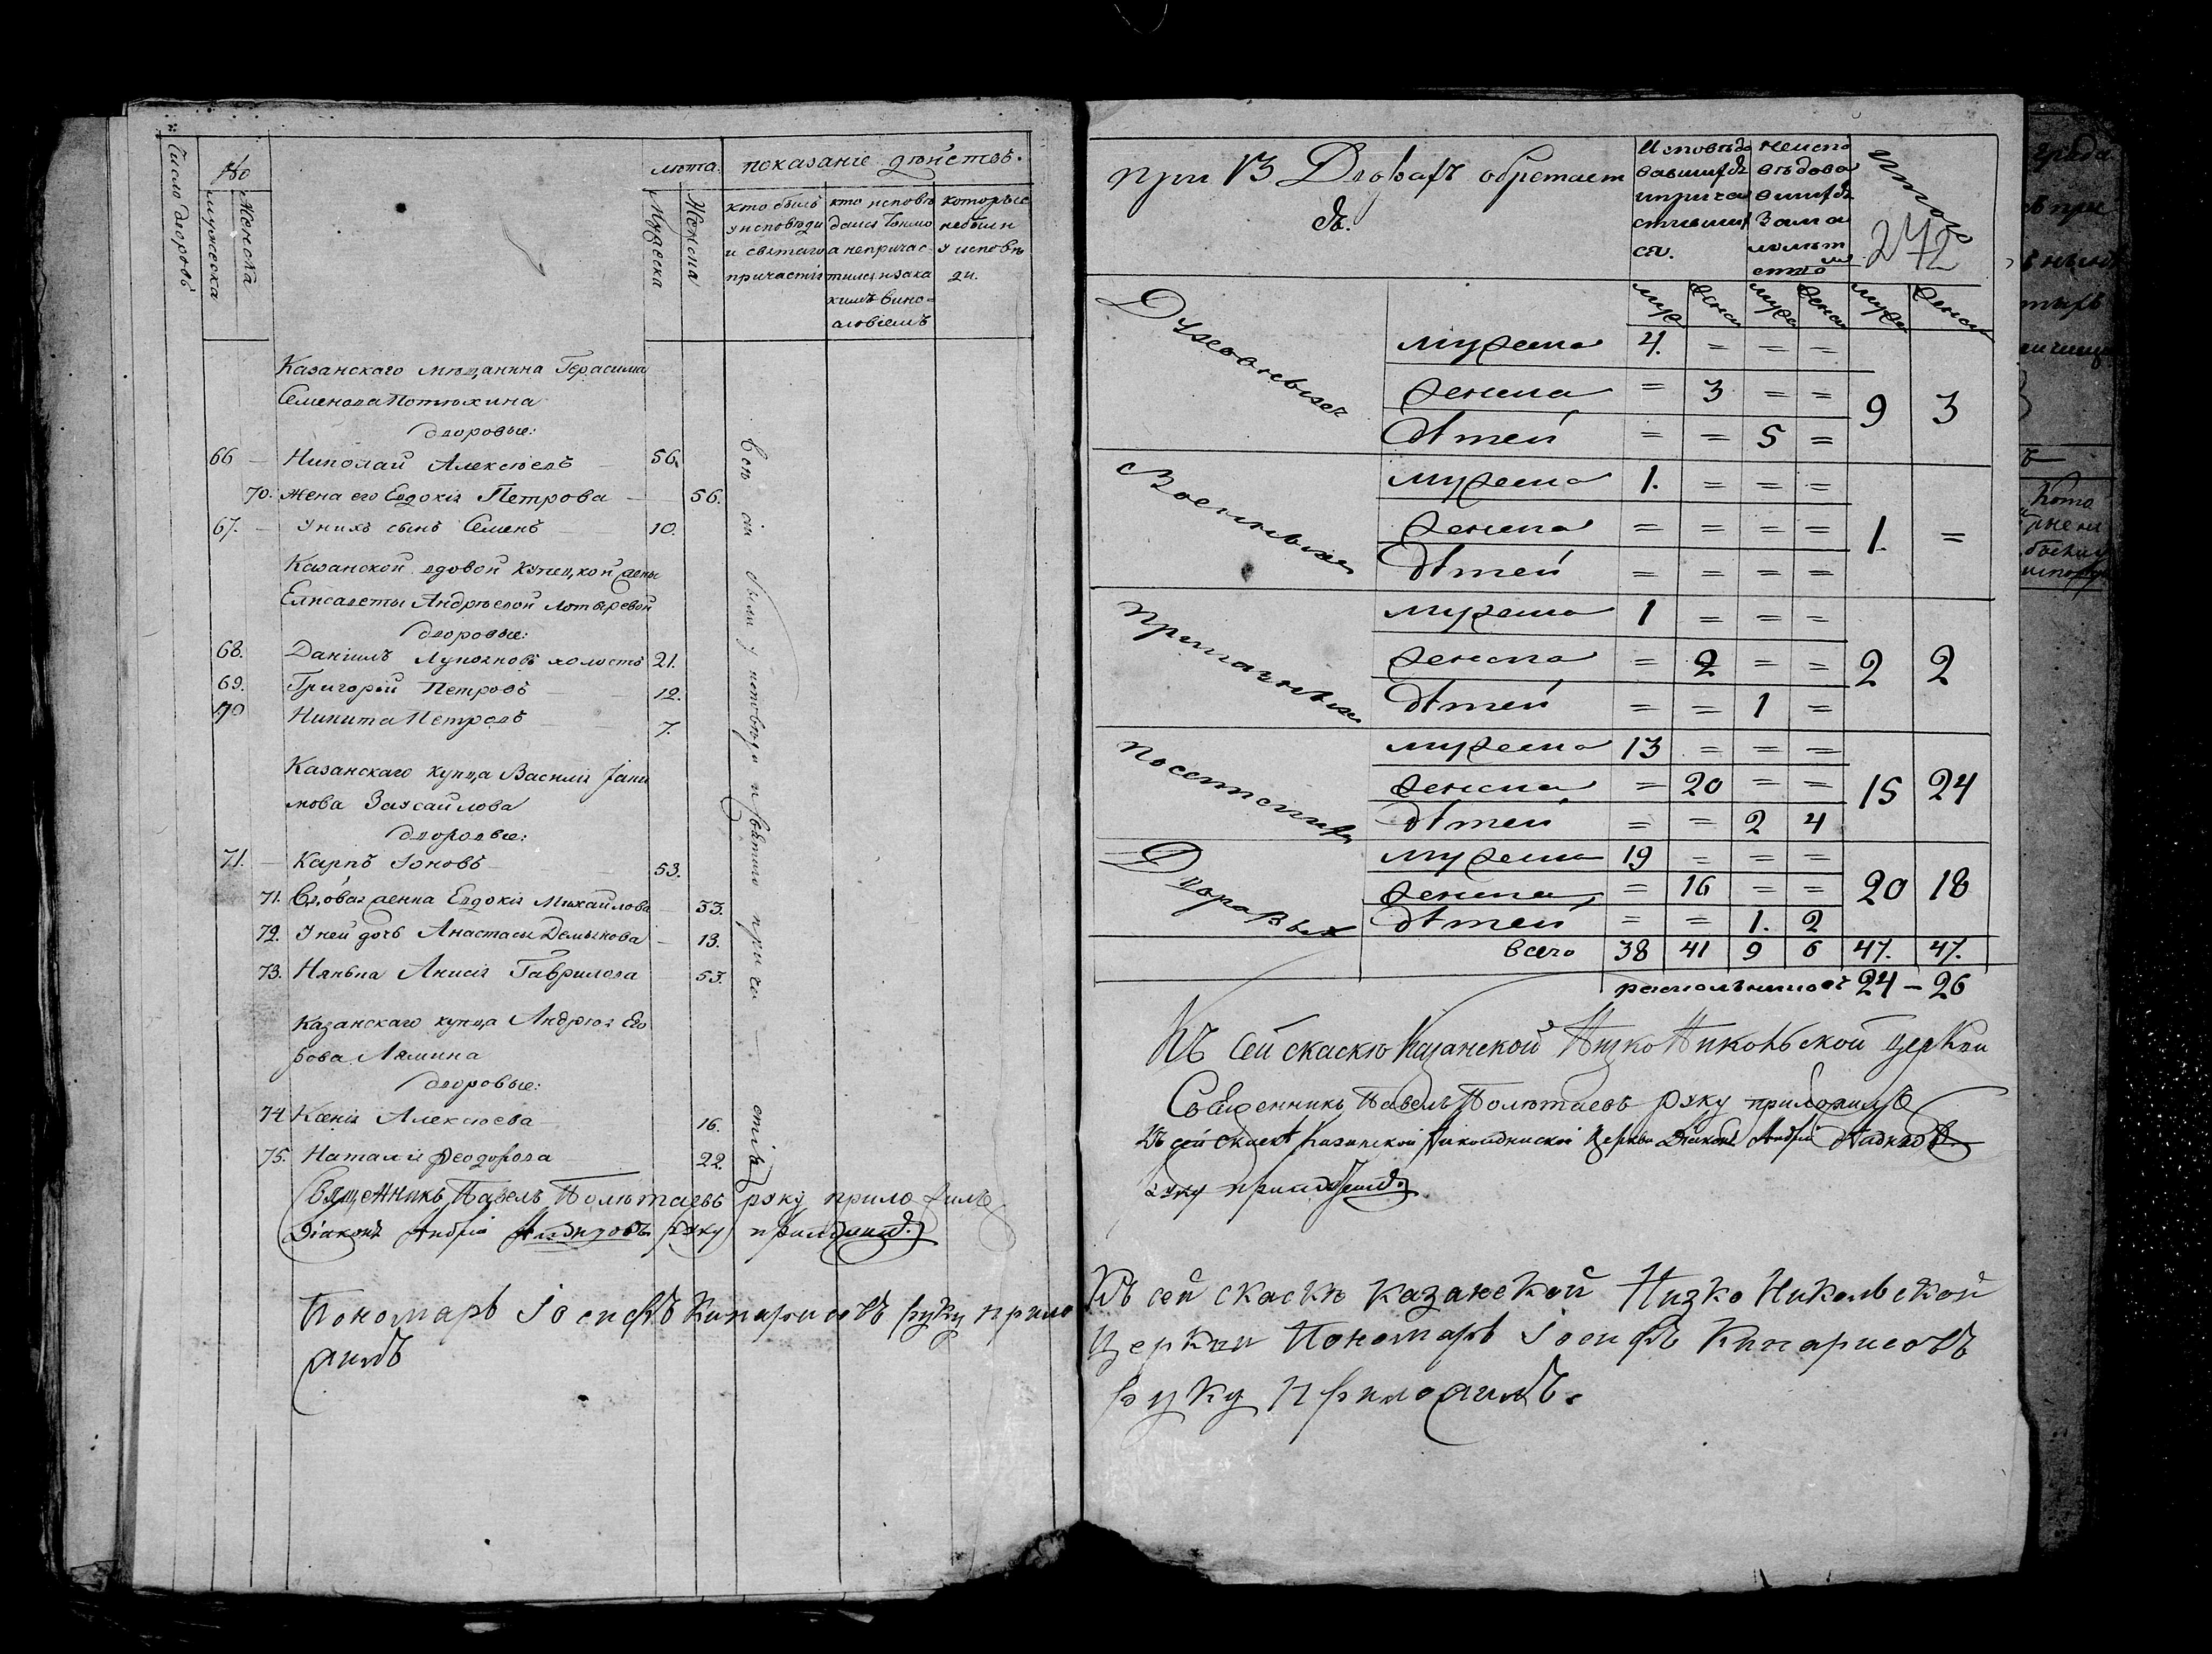 Число дворовъ
№
мужеска
Женска
лѣта
показаніе дѣйствъ.
Мужеска
Женска
кто былъ
у исповѣди
и святаго
причастія
кто исповѣ
дался токмо
а непричас-
тился и за ка
кимъ вино-
словіемъ
которые
небыли
у исповѣ
ди.
Казанскаго мѣщанина Герасима
Семенова Потехина
дворовые:
66 — Николай Алексѣевъ 56.
70. жена его Евдокія Петрова — 56.
67. — У нихъ сынъ Семенъ 10.
Казанской вдовой купецкой жены
Елисаветы Андрѣевой
дворовые:
68. Даніилъ холостъ 21.
69. Григорій Петровъ — 12.
70 Никита Петровъ 7.
Казанскаго купца Василія
дворовые:
71. — Карпъ Іоновъ 53.
71. Вдовая женка Евдокія Михайлова 53.
72. У ней дочь Анастасья — 13.
73. Нянька Анисія Гаврилова 53.
Казанскаго купца Андрея Его
рова Лямина
дворовые:
74 Ксенія Алексѣева 16.
75. Наталія Ѳеодорова 22.
всѣ сіи были у исповѣди и святаго прича — стія
Священникъ Павелъ Полетаевъ руку приложилъ
Діаконъ Андрей руку приложилъ.
Пономарь Іосифъ Кипарисовъ руку прило
жилъ
при 13 Дворахъ обретает
ся.
Исповѣдо
вавшихся
и прича
стивших
ся.
неиспо
вѣдова
вшихся
за ма
лолѣт
ство
Итого
272
муже женск муже женск муже женска
Духовныхъ мужеска 4. = = =
женска = 3 = =
дѣтей = = 5 =
9 3
Военныхъ мужеска 1. = = =
женска = = = =
дѣтей = = = =
1. =
Приказныхъ мужеска 1 = = =
женска = 2 = =
дѣтей = = 1 =
2 2
Посетскихъ мужеска 13 = = =
женска = 20 = =
дѣтей = = 2 4
15 24
Дворовыхъ мужеска 19 = = =
женска = 16 = =
дѣтей = = 1. 2
20 18
всего 38 41 9 6 47. 47.
раскольниковъ 24 — 26
Къ сей скаскѣ Казанской Низко Никольской церкви
Священникъ Павелъ Полетаевъ руку приложилъ
Къ сей скаскѣ Казанской церкви Діаконъ Андрей
руку приложилъ.
Къ сей скаскѣ казанской Низко Никольской
Церкви Пономарь Іосифъ Кипарисовъ
руку приложилъ.